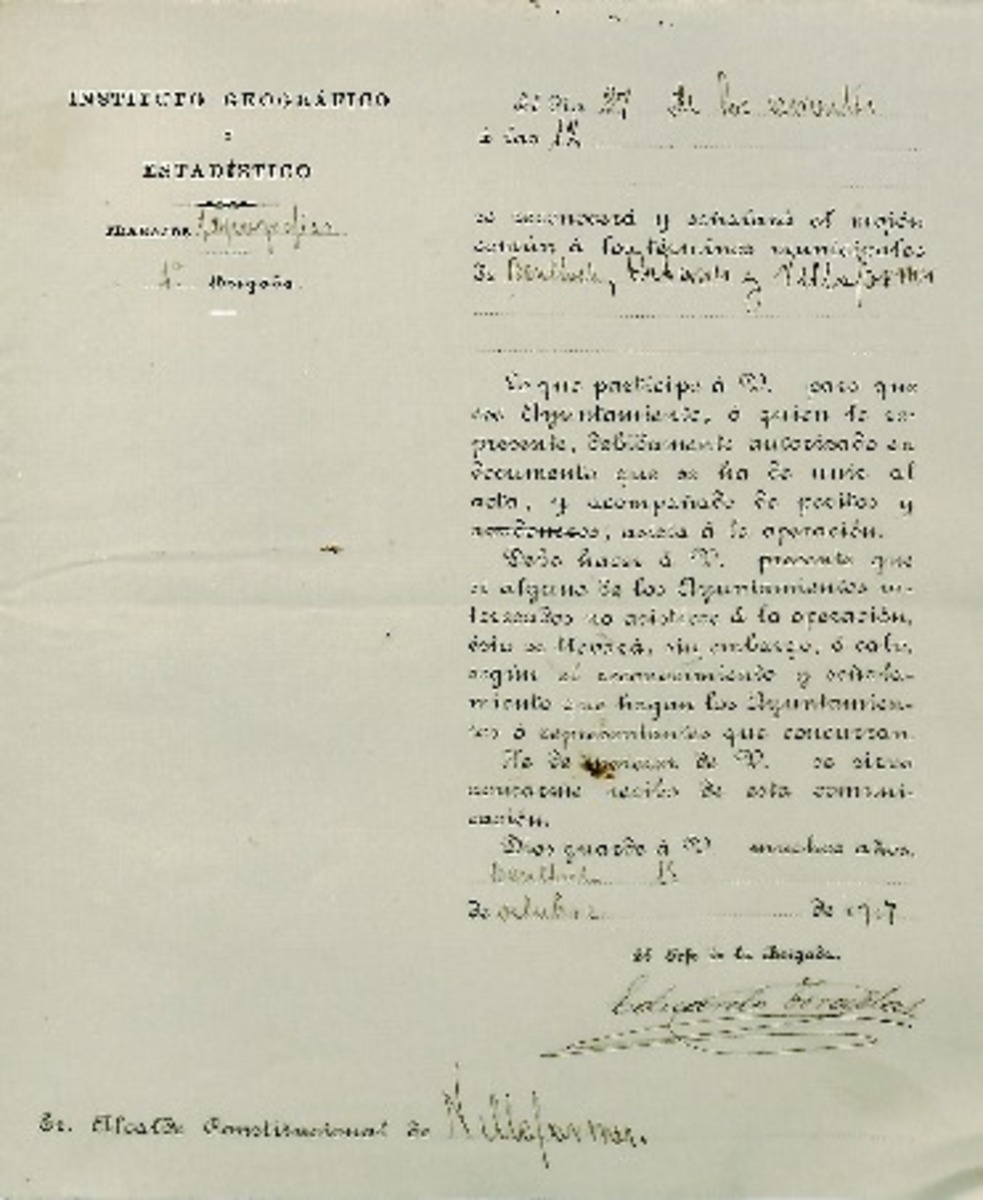 INSTITUTO GEOGRÁFICO
Y
ESTADÍSTICO
1ª Brigada.
El día 27 de los corrientes
á las 12
se reconocerá y señalará el mojón
común á los términos municipales
de Benlloch, y Villafamés
Lo que participo á V. para que
ese Ayuntamiento, ó quien le re-
presente, debidamente autorizado en
documento que se ha de unir al
acta, y acompañado de peritos y
asista á la operación.
Debo hacer á V. presente que
si alguno de los Ayuntamientos in-
teresados no asistiese á la operación,
ésta se llevará, sin embargo, á cabo,
según el reconocimiento y señala-
miento que hagan los Ayuntamien-
tos ó representantes que concurran.
de V. se sirva
acusarme recibo de esta comuni-
cación.
Dios guarde á V. muchos años.
Benlloch 15
de octubre de 1917
El Jefe de la Brigada.
Eduardo
Sr. Alcalde Constitucional de Villafamés.